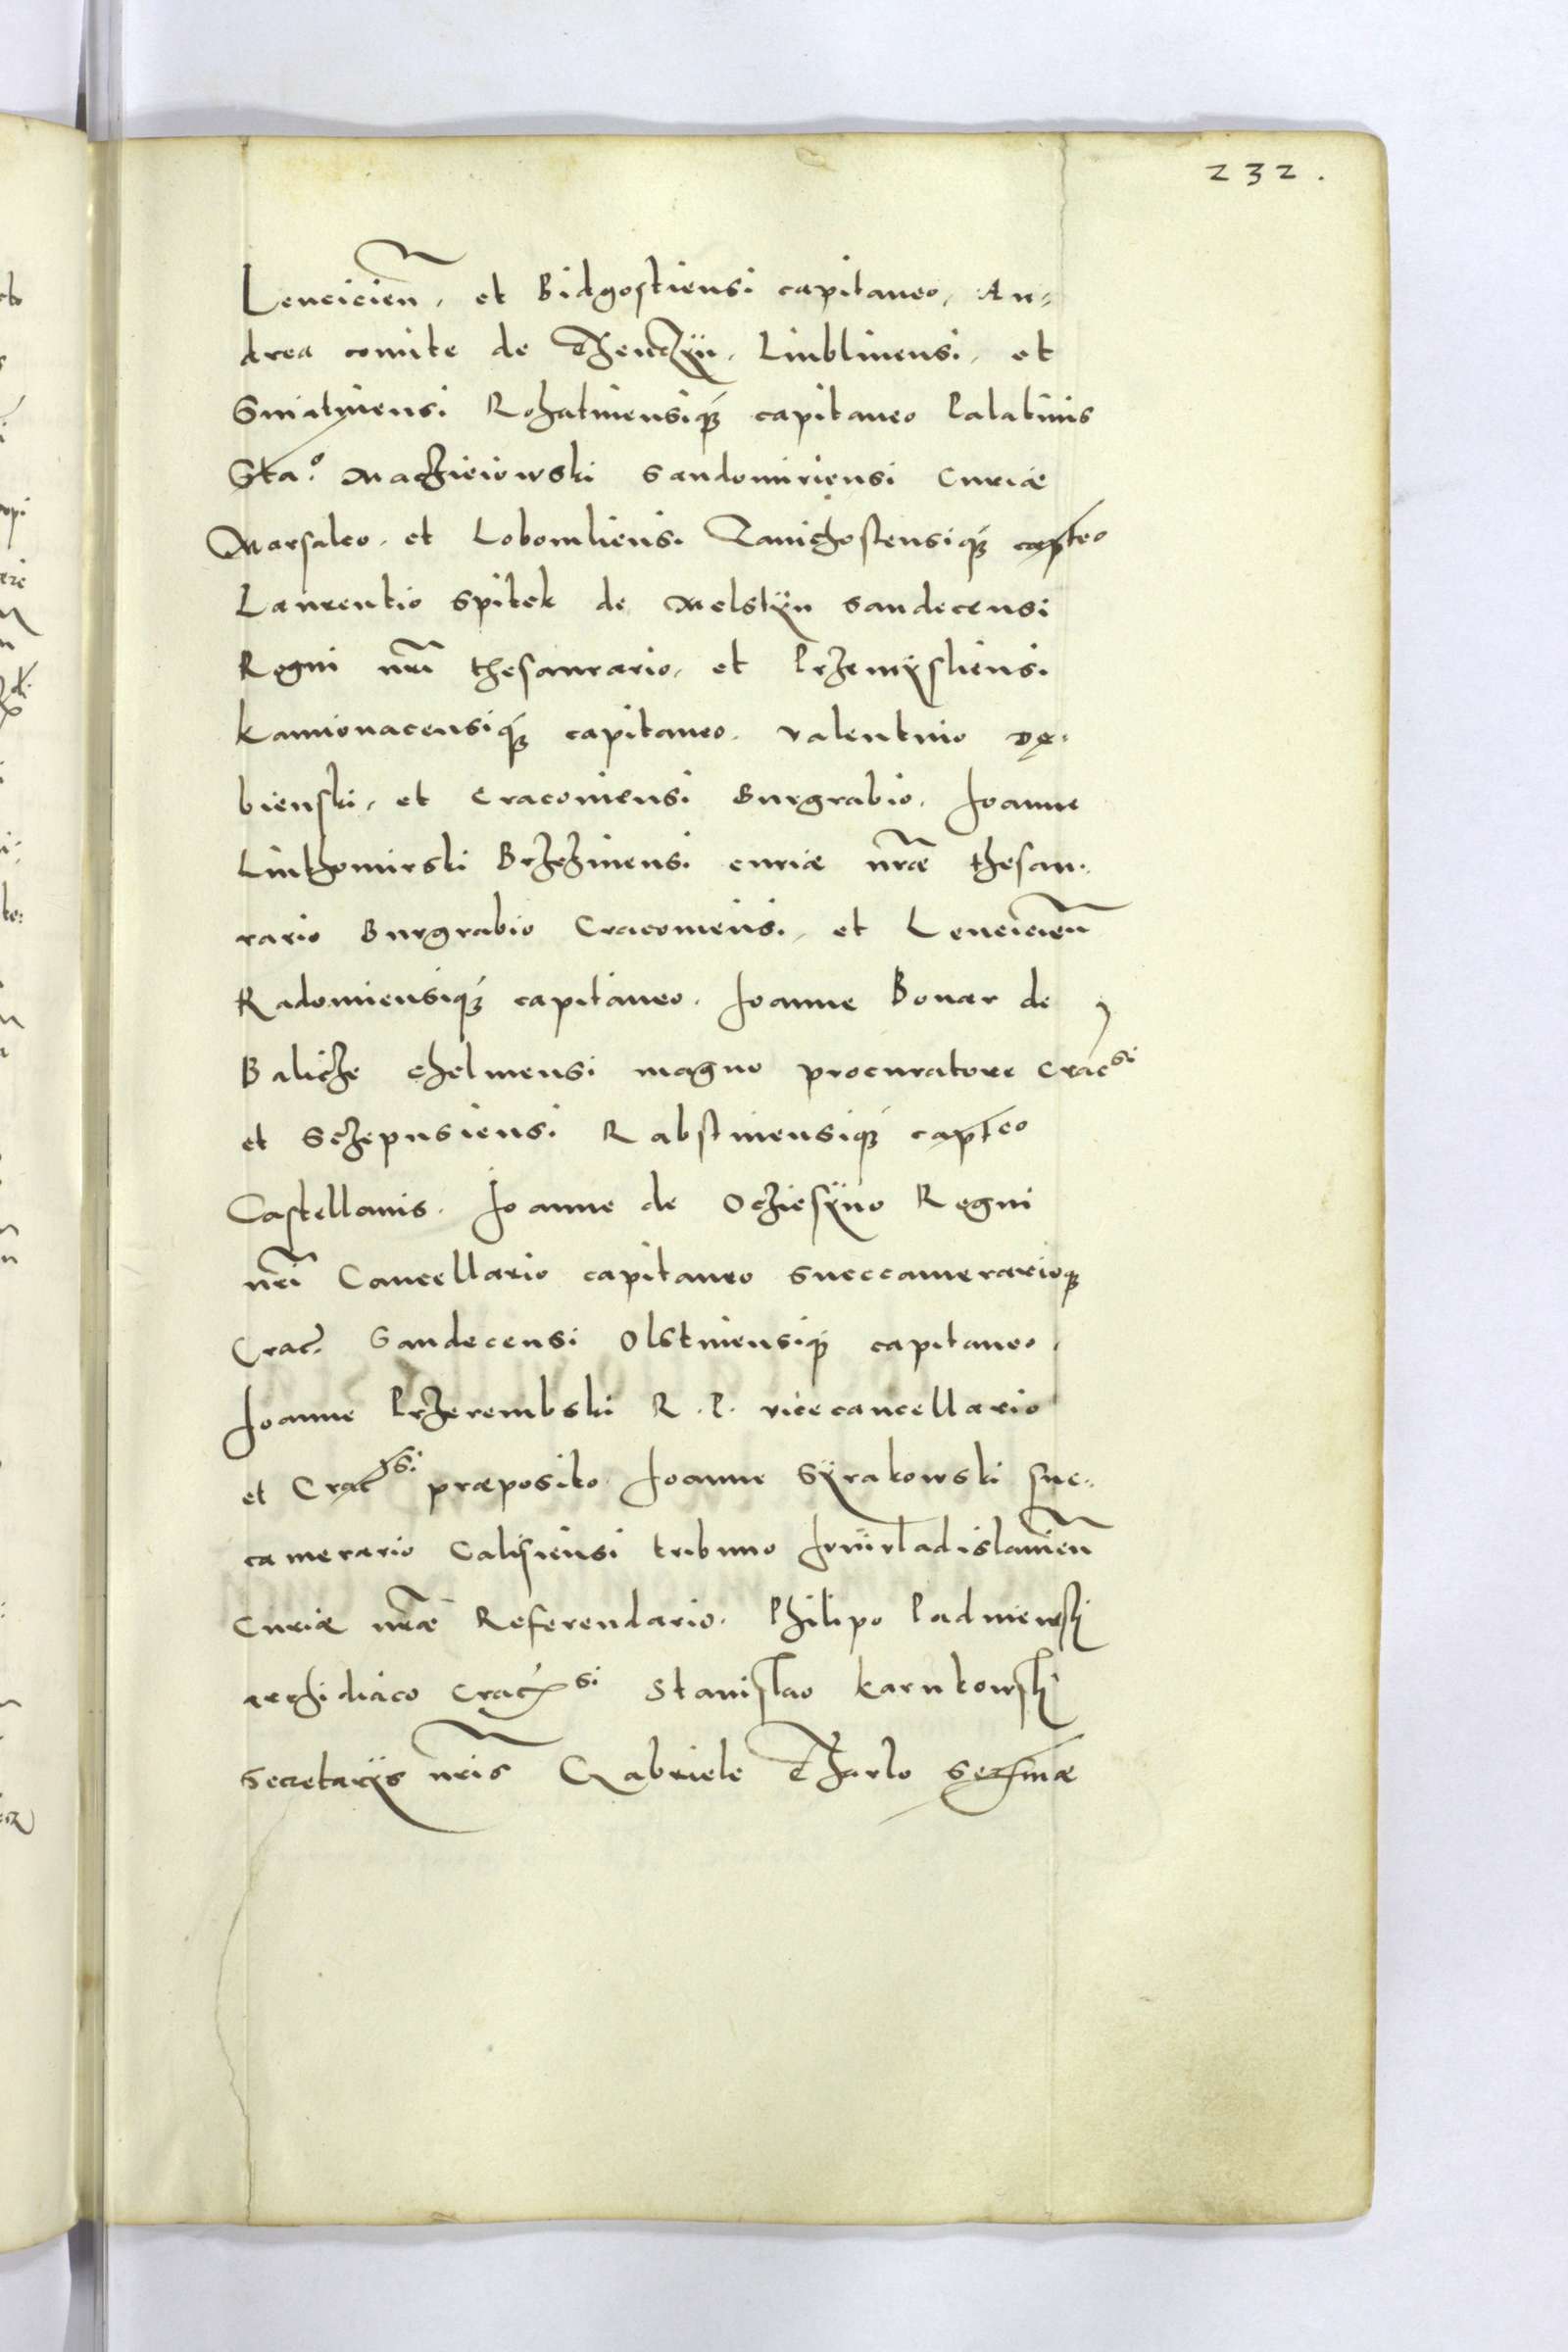 232.
Lencicien̄. et Bidgostiensi capitaneo. An-
drea comite de Thenczÿn. Liublinensi. et
Sniatinensi Rohatinensiq₃ capitaneo Palatinis
Sta.º Maczieiowski Sandomiriensi Curiæ
Marsalco. et Lobomliensi Zavichostensiq₃ capteo
Laurentio Spitek de Melstÿn Sandecensi
Regni nr̄i thesaurario. et Przemÿsliensi
Kamionacensiq₃ capitaneo. Valentino Dę-
bienski. et Cracoviensi Burgrabio. Joanne
Liuthomirski Brzezinensi curiæ nr̄æ thesau-
rario Burgrabio Cracoviensi. et Lencicien̄
Radomiensiq₃ capitaneo. Joanne Bonar de
Balicze Chelmensi magno procuratore Cracsi
et Sczepusiensi Rabstinensiq₃ capteo
Castellanis. Joanne de Ocziesÿno Regni
nr̄i Cancellario capitaneo Succamerarioq₃
Crac. Sandecensi Olstinensiq₃ capitaneo.
Joanne Przerembski R. P. vicecancellario
et Cracsi præposito. Joanne Sÿrakowski suc-
camerario Calisiensi tribuno Junivladislavien̄
Curiæ nr̄æ Referendario. Philipo Padniewski
archidiaco Cracsi Stanislao Karnkowski
Secretarijs nr̄is Gabriele Tharlo Sermæ